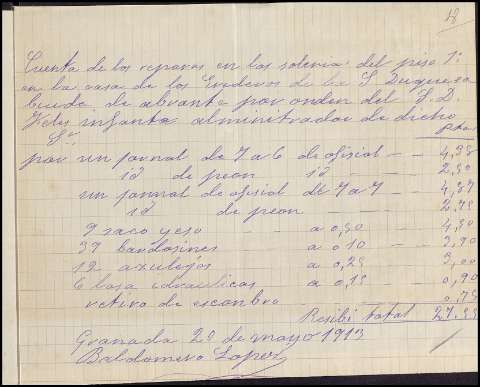 Cuenta de los reparos en las solerias del piso 1º
en la casa de los Erederos de la S. Duquesa
biuda de abrante por orden del S. D.
Felis infanta alministrador de dicho
Sr. ptas
por un jornal de 7 a 6 de ofisial - - 4,
id de peon id - - 2,50
un jornal de ofisial de 7 a 7 - - 4,
id de peon - - 2,75
9 saco yeso - - a 0,50 - - 4,50
37 bardosines - - a 0 10 - - 3,70
12 azulejos - - a 0,25 - - 3,00
6 losa idraulicas - - a 0,15 - 0,90
retiro de escombro - - 0,75
Recibi total
Granada 20 de mayo 1913
Baldomero Lopez